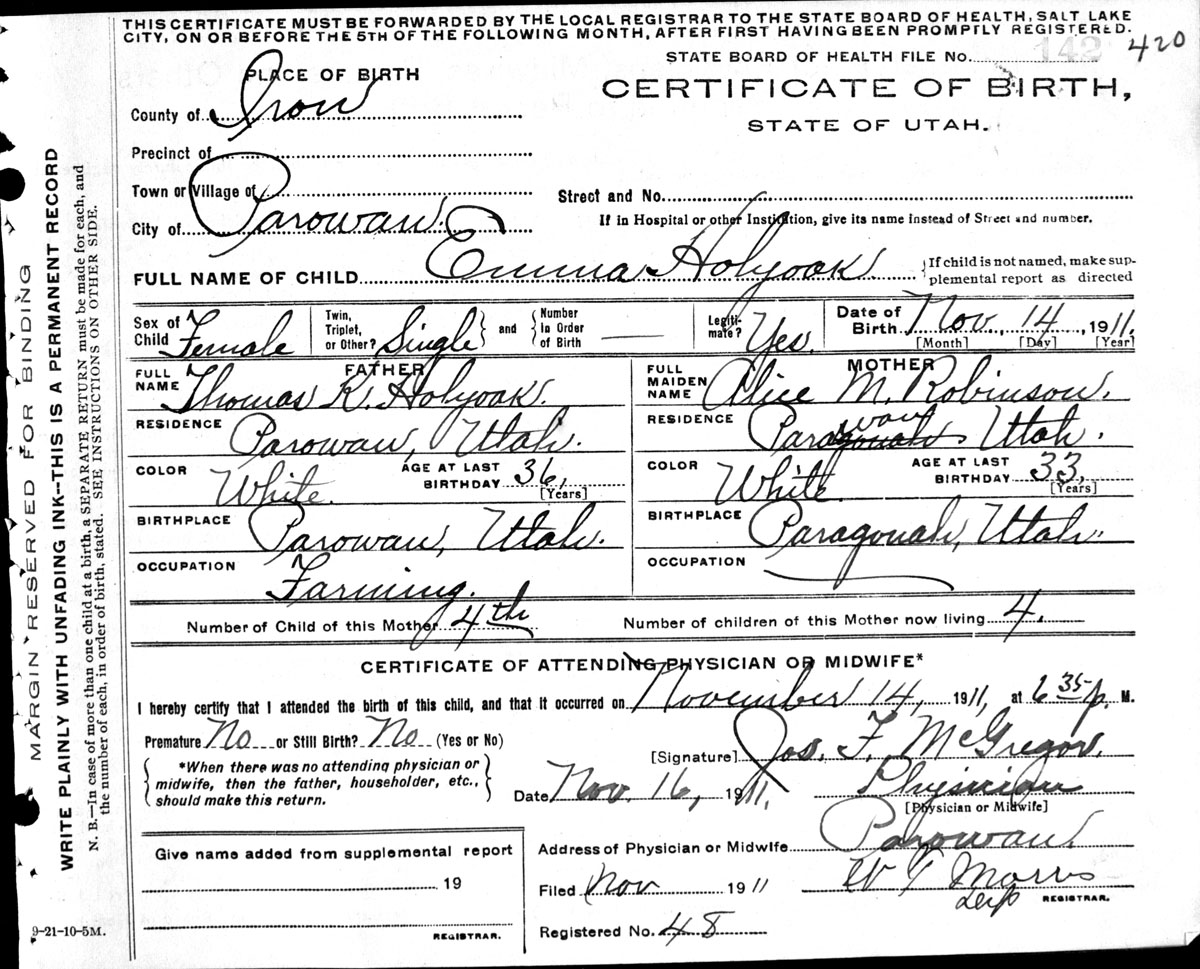 THIS CERTIFICATE MUST BE FORWARDED BY THE LOCAL REGISTRAR TO THE STATE BOARD OF HEALTH, SALT LAKE
CITY, ON OR BEFORE THE 5TH OF THE FOLLOWING MONTH, AFTER FIRST HAVING BEEN PROMPTLY REGISTERED.
STATE BOARD OF HEALTH FILE No. 142 420
PLACE OF BIRTH
CERTIFICATE OF BIRTH,
STATE OF UTAH.
County of Iron
Precinct of
Town or Village of
Street and No.
City of Parowan.
If in Hospital or other Institution, give its name instead of Street and number.
FULL NAME OF CHILD Emma Holyoak
{If child is not named, make sup-
plemental report as directed
Sex of Child Female
Twin, Triplet, or Other? Single
and
Number In Order of Birth
Legiti-mate? Yes.
Date of Birth Nov. 14, 1911.
[Month] [Day] [Year]
FATHER
FULL NAME Thomas K. Holyoak.
RESIDENCE Parowan, Utah.
COLOR White.
AGE AT LAST BIRTHDAY 36,
[Years]
BIRTHPLACE Parowan, Utah.
OCCUPATION Farming.
MOTHER
FULL MAIDEN NAME Alice M. Robinson.
RESIDENCE Paragonah wan Utah.
COLOR White.
AGE AT LAST BIRTHDAY 33,
[Years]
BIRTHPLACE Paragonah, Utah.
OCCUPATION
Number of Child of this Mother 4th
Number of children of this Mother now living 4.
CERTIFICATE OF ATTENDING PHYSICIAN OR MIDWIFE*
I hereby certify that I attended the birth of this child, and that it occurred on November 14, 1911, at 6 35 p. M.
Premature No or Still Birth? No (Yes or No)
{*When there was no attending physician or
midwife, then the father, householder, etc.,
should make this return.}
[Signature] Jos. F. McGregor.
Date Nov. 16, 1911.
Physician
[Physician or Midwife]
Address of Physician or Midwife Parowan.
Give name added from supplemental report
19
REGISTRAR.
Filed Nov 1911
W T Morris
REGISTRAR.
Registered No. 48
9-21-10-5M.
MARGIN RESERVED FOR BINDING
WRITE PLAINLY WITH UNFADING INK--THIS IS A PERMANENT RECORD
N. B.—In case of more than one child at a birth, a SEPARATE RETURN must be made for each, and
the number of each, in order of birth, stated. SEE INSTRUCTIONS ON OTHER SIDE.